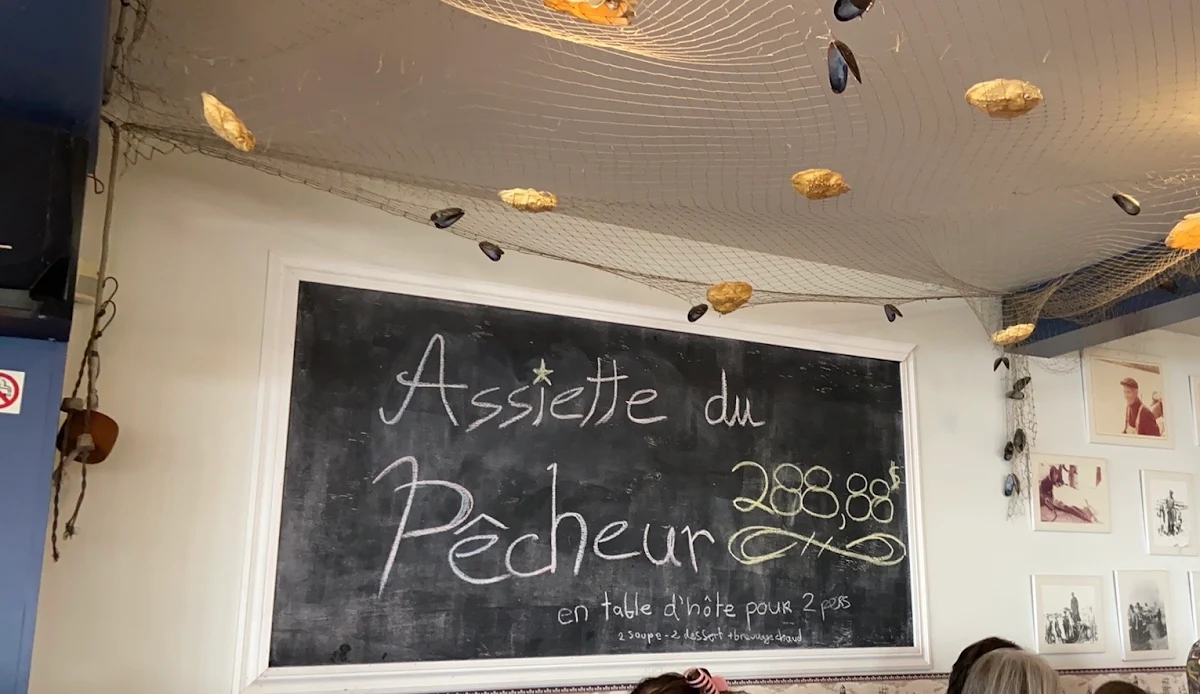 Assiette du
Pêcheur 288,88$
en table d'hôte pour 2 pers
2 soupe - 2 dessert + breuvage chaud